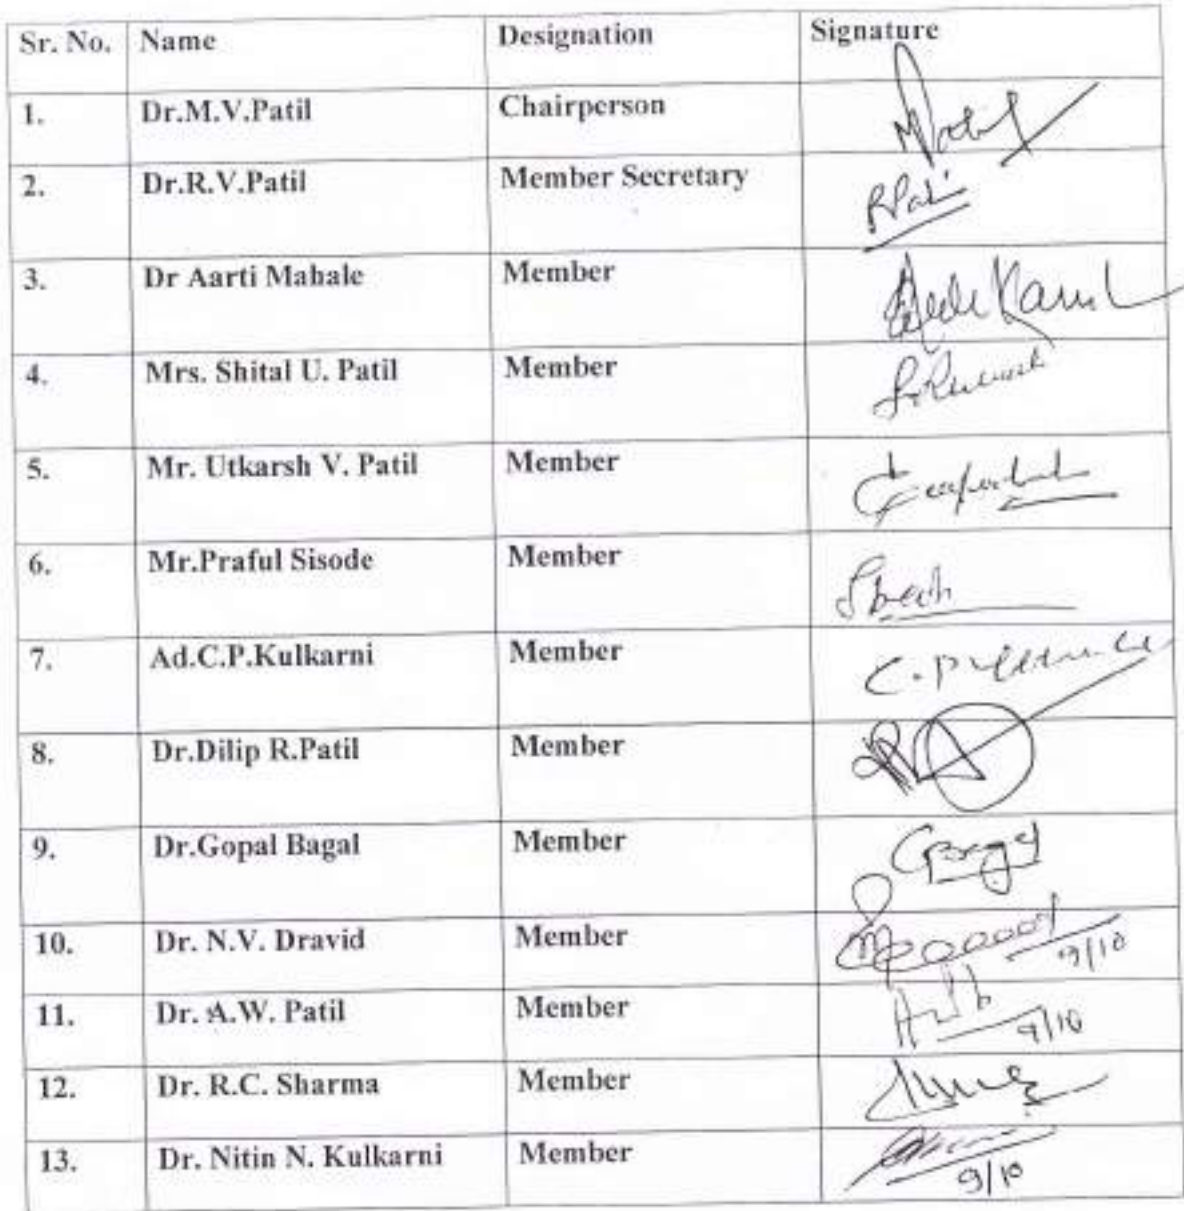 Sr. No. Name Designation Signature
1. Dr.M.V.Patil Chairperson MPatil
2. Dr.R.V.Patil Member Secretary RPati
3. Dr Aarti Mahale Member
4. Mrs. Shital U. Patil Member
5. Mr. Utkarsh V. Patil Member
6. Mr.Praful Sisode Member
7. Ad.C.P.Kulkarni Member
8. Dr.Dilip R.Patil Member
9. Dr.Gopal Bagal Member GBagal
10. Dr. N.V. Dravid Member 9/10
11. Dr. A.W. Patil Member 9/10
12. Dr. R.C. Sharma Member
13. Dr. Nitin N. Kulkarni Member 9/10